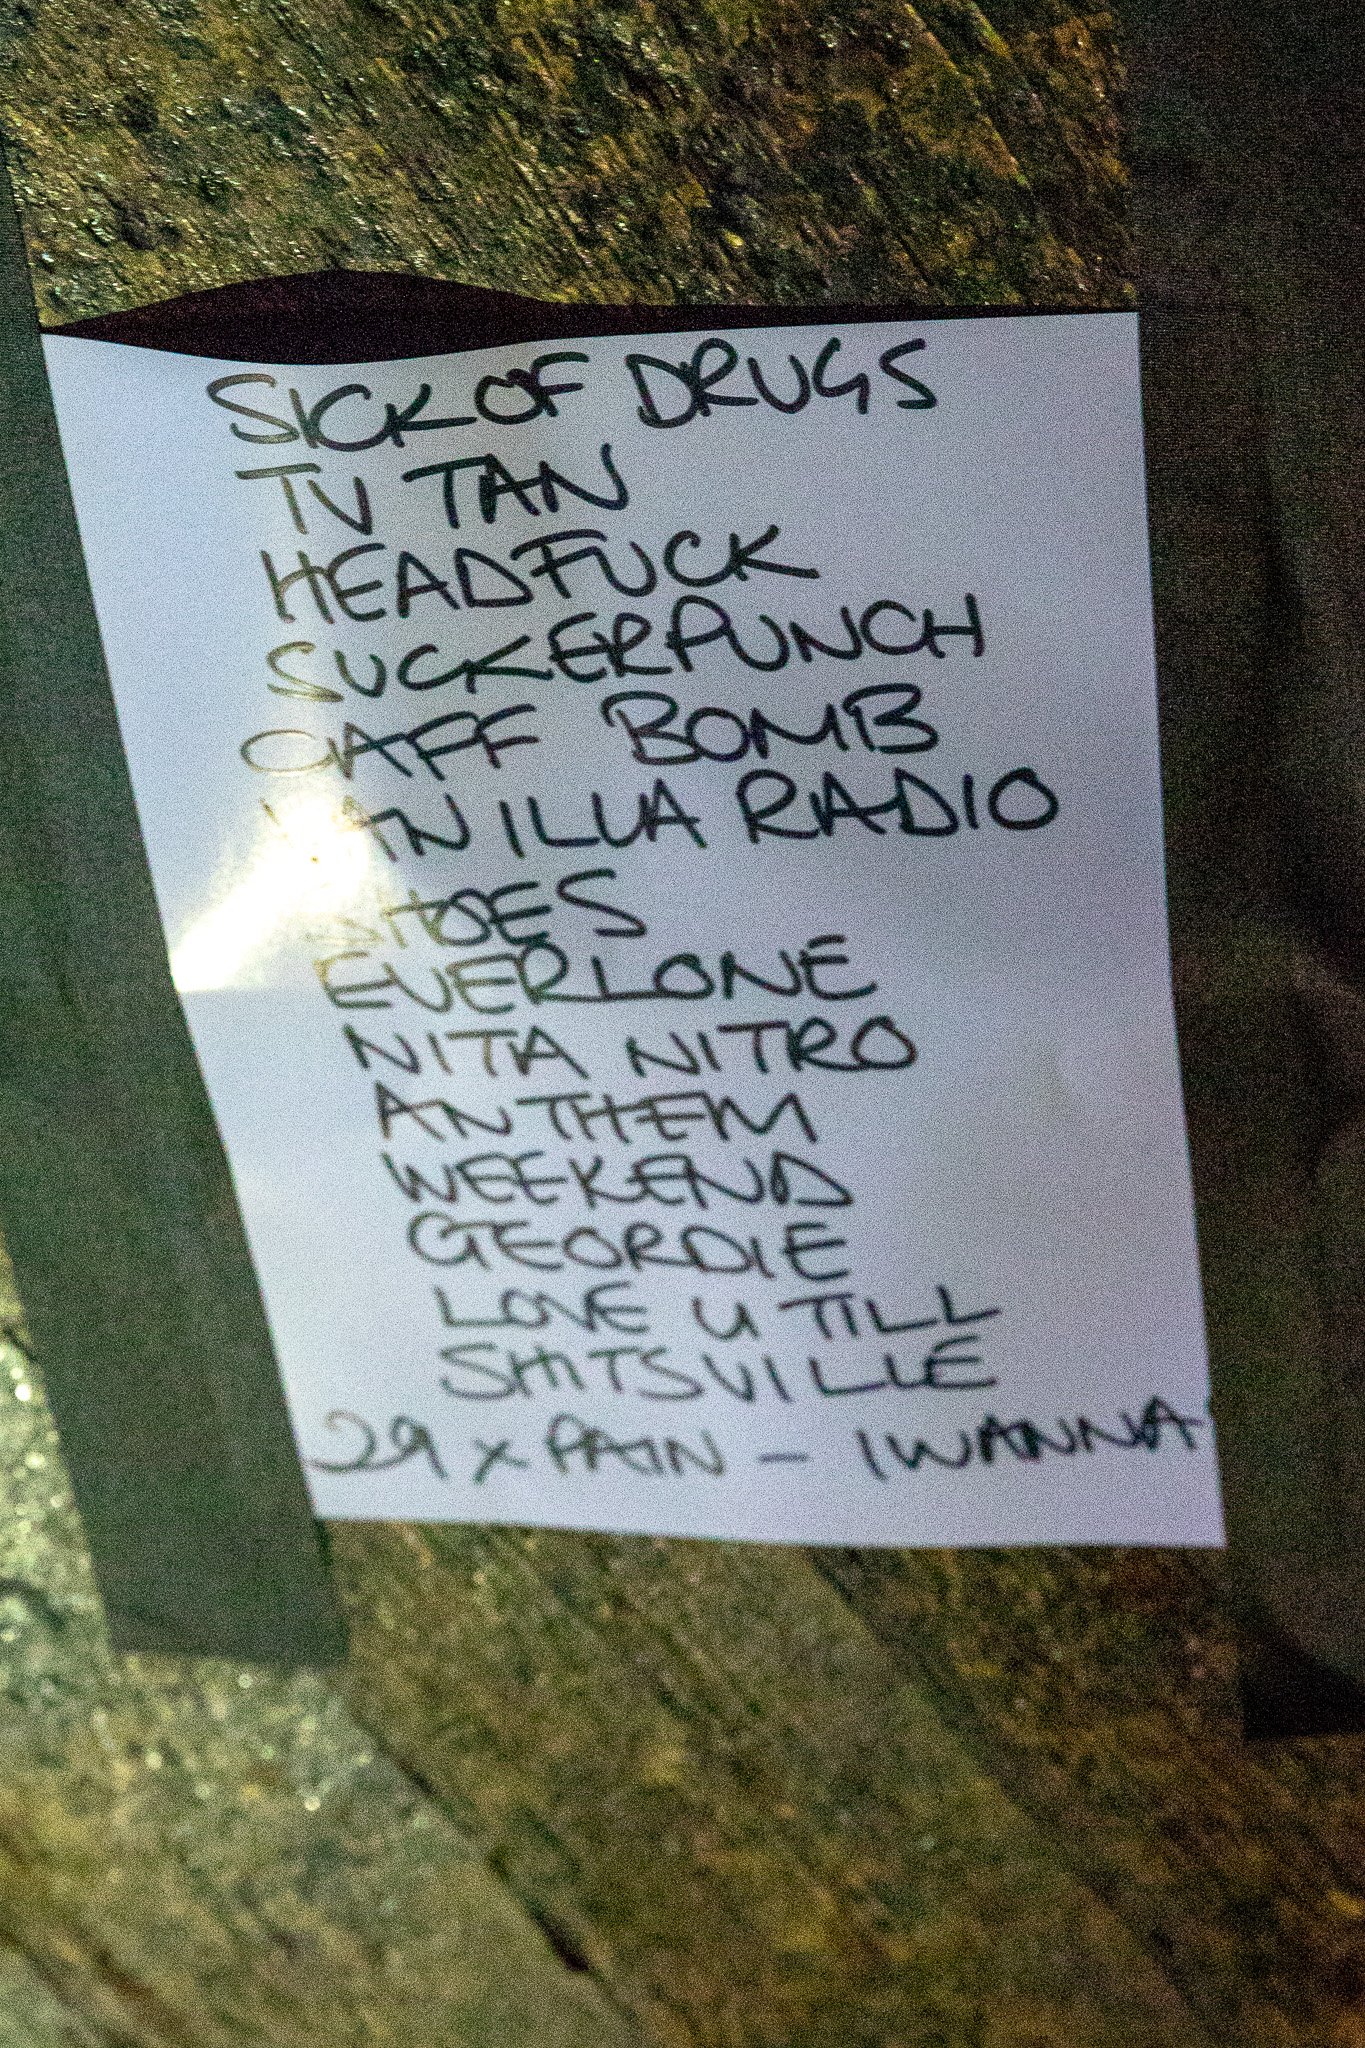 SICK OF DRUGS
TV TAN
HEADFUCK
SUCKERPUNCH
CAFF BOMB
VANILLA RADIO
SHOES
EVERLONE
NITA NITRO
ANTHEM
WEEKEND
GEORDIE
LOVE U TILL
SHITSVILLE
29 x PAIN - I WANNA